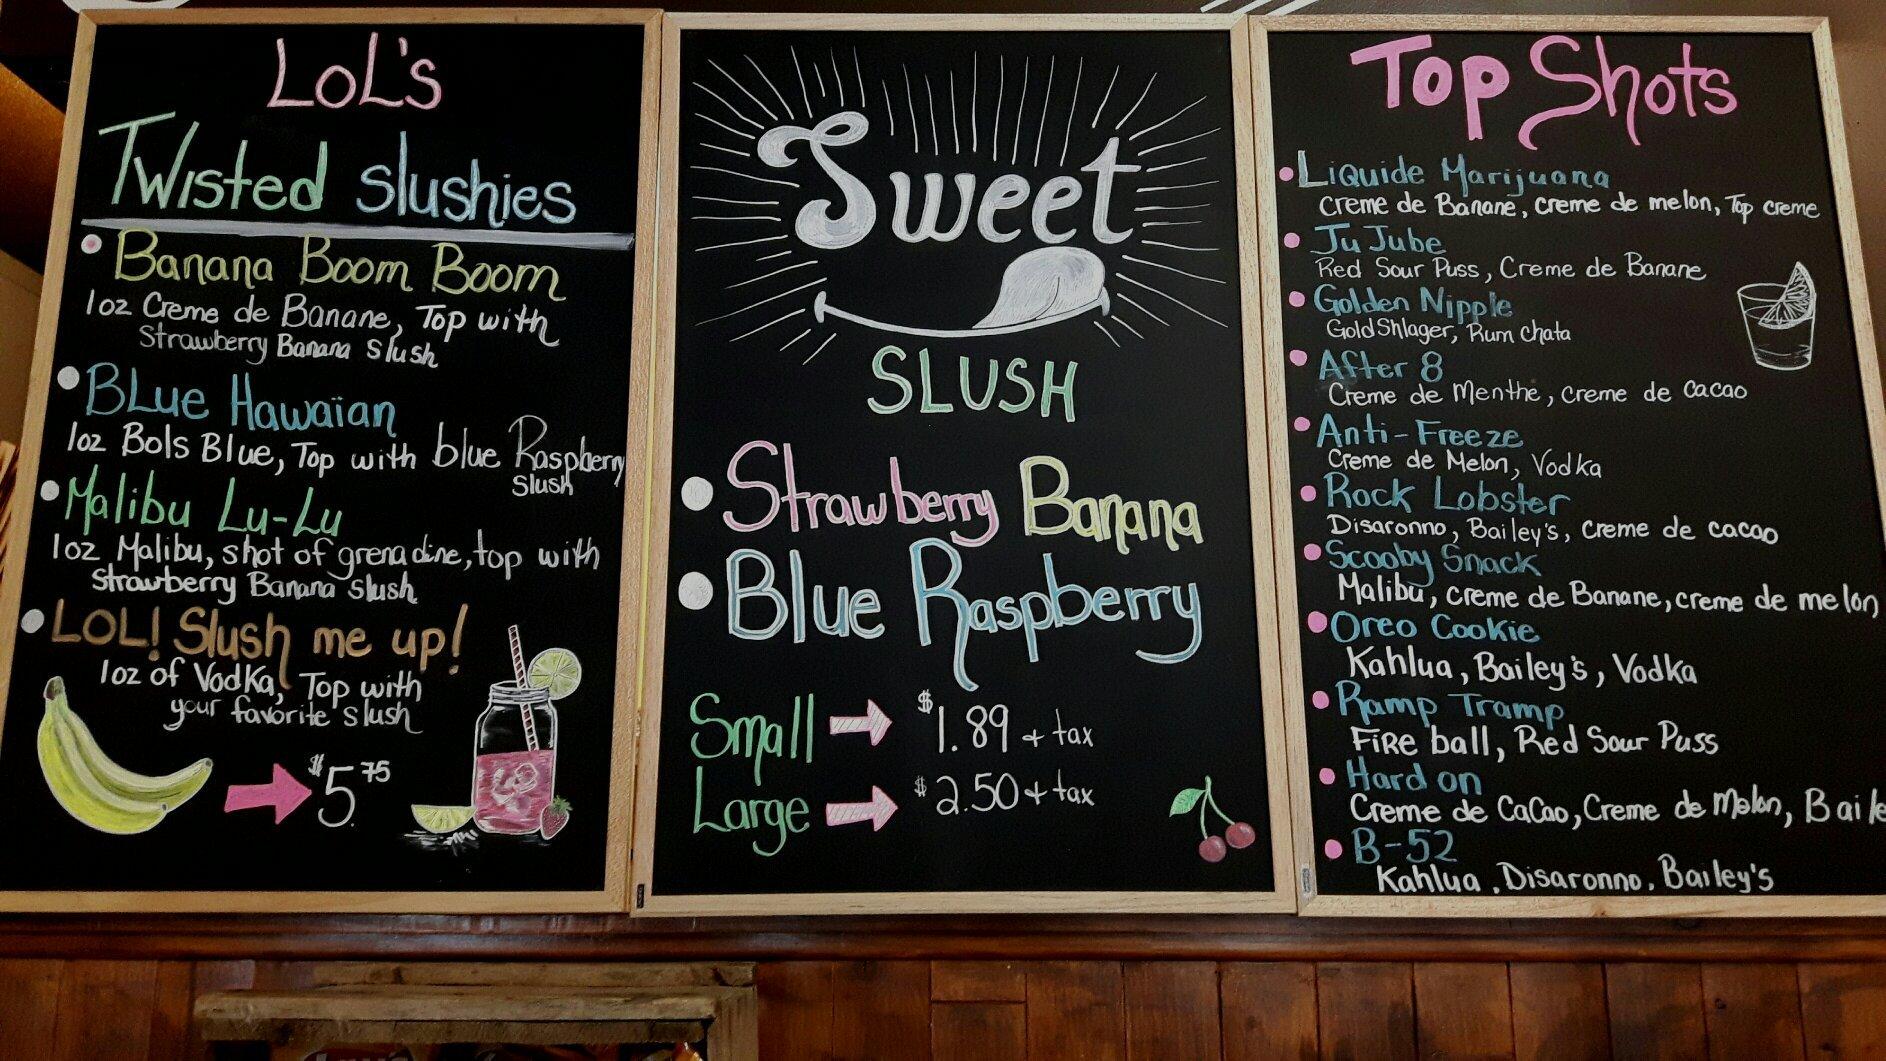 LoL's
Twisted slushies
Banana Boom Boom
1oz Creme de Banane, Top with
Strawberry Banana slush
BLue Hawaïan
1oz Bols Blue, Top with blue Raspberry
slush
Malibu Lu-Lu
1oz Malibu, shot of grenadine, top with
strawberry Banana slush
LOL! Slush me up!
1oz of Vodka, Top with
your favorite slush
$5.75
Sweet
SLUSH
Strawberry Banana
Blue Raspberry
Small $1.89 + tax
Large $2.50 + tax
Top Shots
Liquide Marijuana
creme de Banane, creme de melon, Top creme
Ju Jube
Red Sour Puss, Creme de Banane
Golden Nipple
GoldShlager, Rum chata
After 8
Creme de Menthe, creme de cacao
Anti-Freeze
Creme de Melon, Vodka
Rock Lobster
Disaronno, Bailey's, creme de cacao
Scooby Snack
Malibu, creme de Banane, creme de melon
Oreo Cookie
Kahlua, Bailey's, Vodka
Ramp Tramp
Fire ball, Red Sour Puss
Hard on
Creme de CaCao, Creme de Melon, Baile
B-52
Kahlua, Disaronno, Bailey's